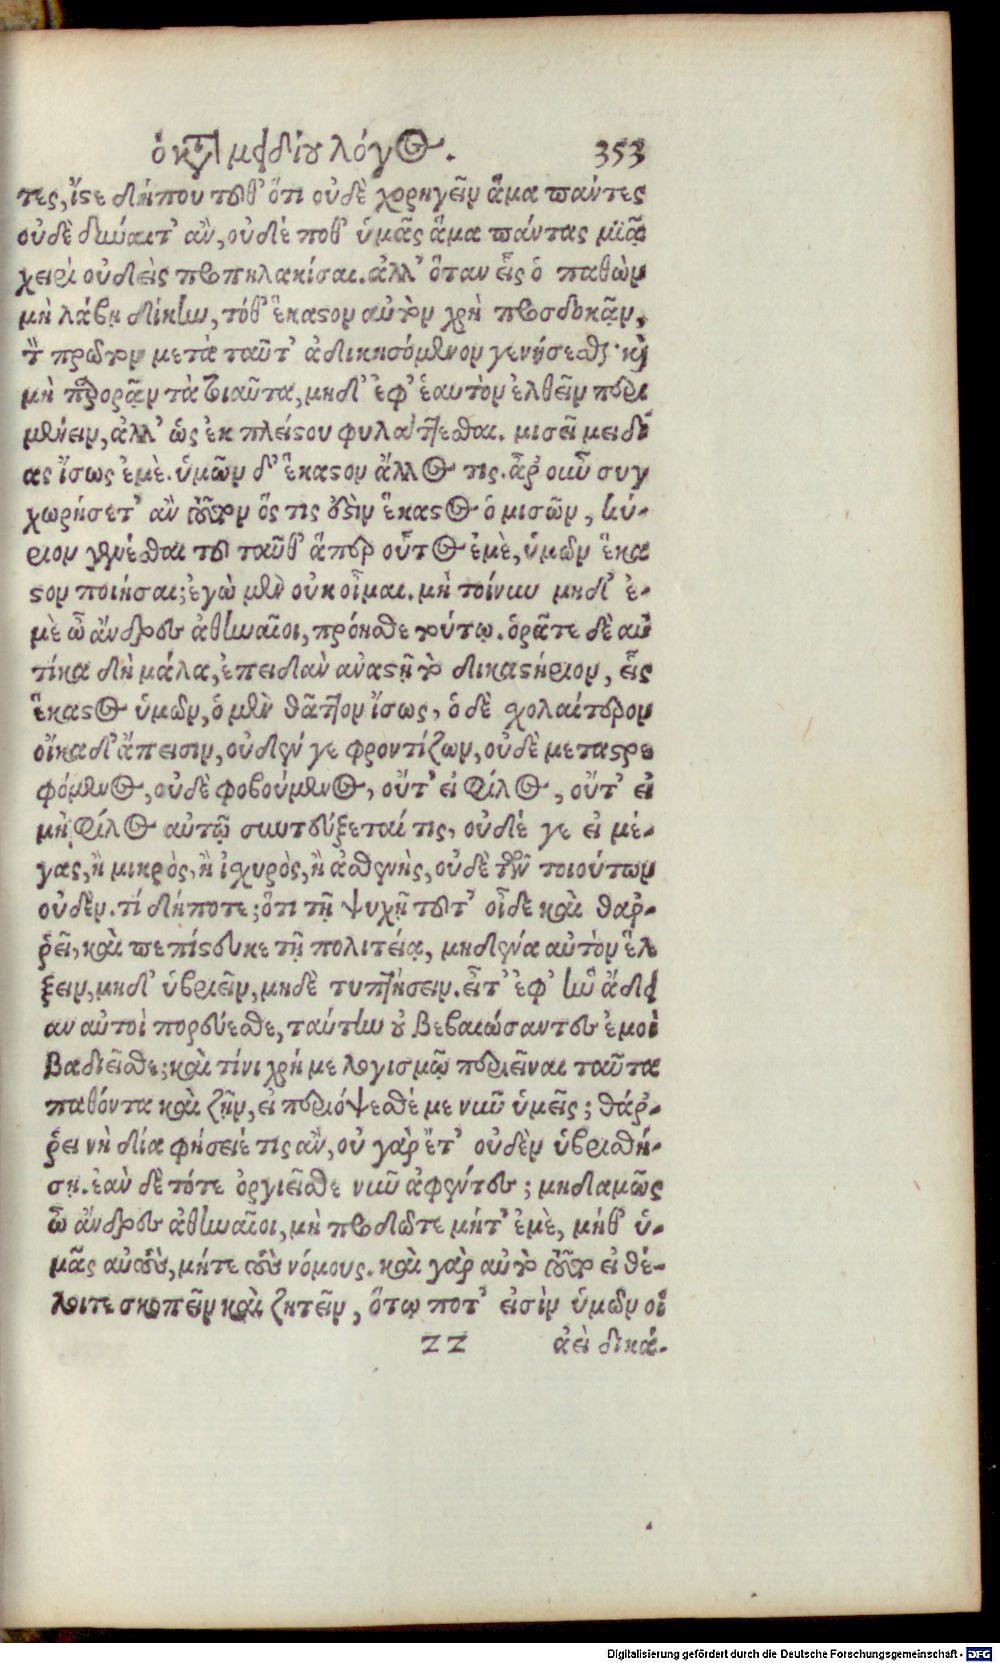 ὁ κατὰ μειδίου λόγος. 353
τες, ἴστε δήπου τοῦθ' ὅτι οὐδὲ χορηγεῖν ἅμα πάντες
οὐδὲ δύναιτ' ἂν, οὐδέ ποθ' ὑμᾶς ἅμα πάντας μιᾷ
χειρὶ οὐδεὶς προπηλακίσαι. ἀλλ' ὅταν εἷς ὁ παθὼν
μὴ λάβῃ δίκην, τόθ' ἕκαστον αὐτὸν χρὴ προσδοκᾷν,
τὸν πρῶτον μετὰ ταῦτ' ἀδικησόμενον γενήσεσθαι· καὶ
μὴ παρορᾷν τὰ τοιαῦτα, μηδ' ἐφ' ἑαυτὸν ἐλθεῖν περι
μένειν, ἀλλ' ὡς ἐκ πλείστου φυλάττεσθαι. μισεῖ μειδί
ας ἴσως ἐμὲ. ὑμῶν δ' ἕκαστον ἄλλος τις. ἆρ' οὖν συγ
χωρήσετ' ἂν τοῦτον ὅς τις ἐστὶν ἕκαστος ὁ μισῶν, κύ-
ριον γενέσθαι τοῦ ταῦθ' ἅπερ οὗτος ἐμὲ, ὑμῶν ἕκα
στον ποιῆσαι; ἐγὼ μὲν οὐκ οἶμαι. μὴ τοίνυν μηδ' ἐ-
μὲ ὦ ἄνδρες ἀθηναῖοι, πρόησθε τούτῳ. ὁρᾶτε δὲ αὐ
τίκα δὴ μάλα, ἐπειδὰν ἀναστῇ τὸ δικαστήριον, εἷς
ἕκαστος ὑμῶν, ὁ μὲν θᾶττον ἴσως, ὁ δὲ σχολαίτερον
οἴκαδ' ἄπεισιν, οὐδέν γε φροντίζων, οὐδὲ μεταστρε
φόμενος, οὐδὲ φοβούμενος, οὔτ' εἰ φίλος, οὔτ' εἰ
μὴ φίλος αὐτῷ συντεύξεταί τις, οὐδέ γε εἰ μέ-
γας, ἢ μικρὸς, ἢ ἰσχυρὸς, ἢ ἀσθενὴς, οὐδὲ τῶν τοιούτων
οὐδὲν. τί δήποτε; ὅτι τῇ ψυχῇ τοῦτ' οἶδε καὶ θαρ-
ρεῖ, καὶ πεπίστευκε τῇ πολιτείᾳ, μηδένα αὐτὸν ἕλ
ξειν, μηδ' ὑβριεῖν, μηδὲ τυπτήσειν. εἶτ' ἐφ' ἣν ἄδει
αν αὐτοὶ πορεύεσθε, ταύτην οὐ βεβαιώσαντες ἐμοὶ
βαδιεῖσθε; καὶ τίνι χρή με λογισμῷ περιεῖναι ταῦτα
παθόντα καὶ ζῇν, εἰ περιόψεσθέ με νῦν ὑμεῖς; θάρ-
ρει νὴ δία φήσειέ τις ἂν, οὐ γὰρ ἔτ' οὐδὲν ὑβρισθή-
σῃ. ἐὰν δὲ τότε ὀργιεῖσθε νῦν ἀφέντες; μηδαμῶς
ὦ ἄνδρες ἀθηναῖοι, μὴ προδῶτε μήτ' ἐμὲ, μήθ' ὑ-
μᾶς αὐτοὺς, μήτε τοὺς νόμους. καὶ γὰρ αὐτὸ τοῦτο εἰ θέ-
λοιτε σκοπεῖν καὶ ζητεῖν, ὅτῳ ποτ' εἰσὶν ὑμῶν οἱ
ZZ ἀεὶ δικά-
Digitalisierung gefördert durch die Deutsche Forschungsgemeinschaft - DFG